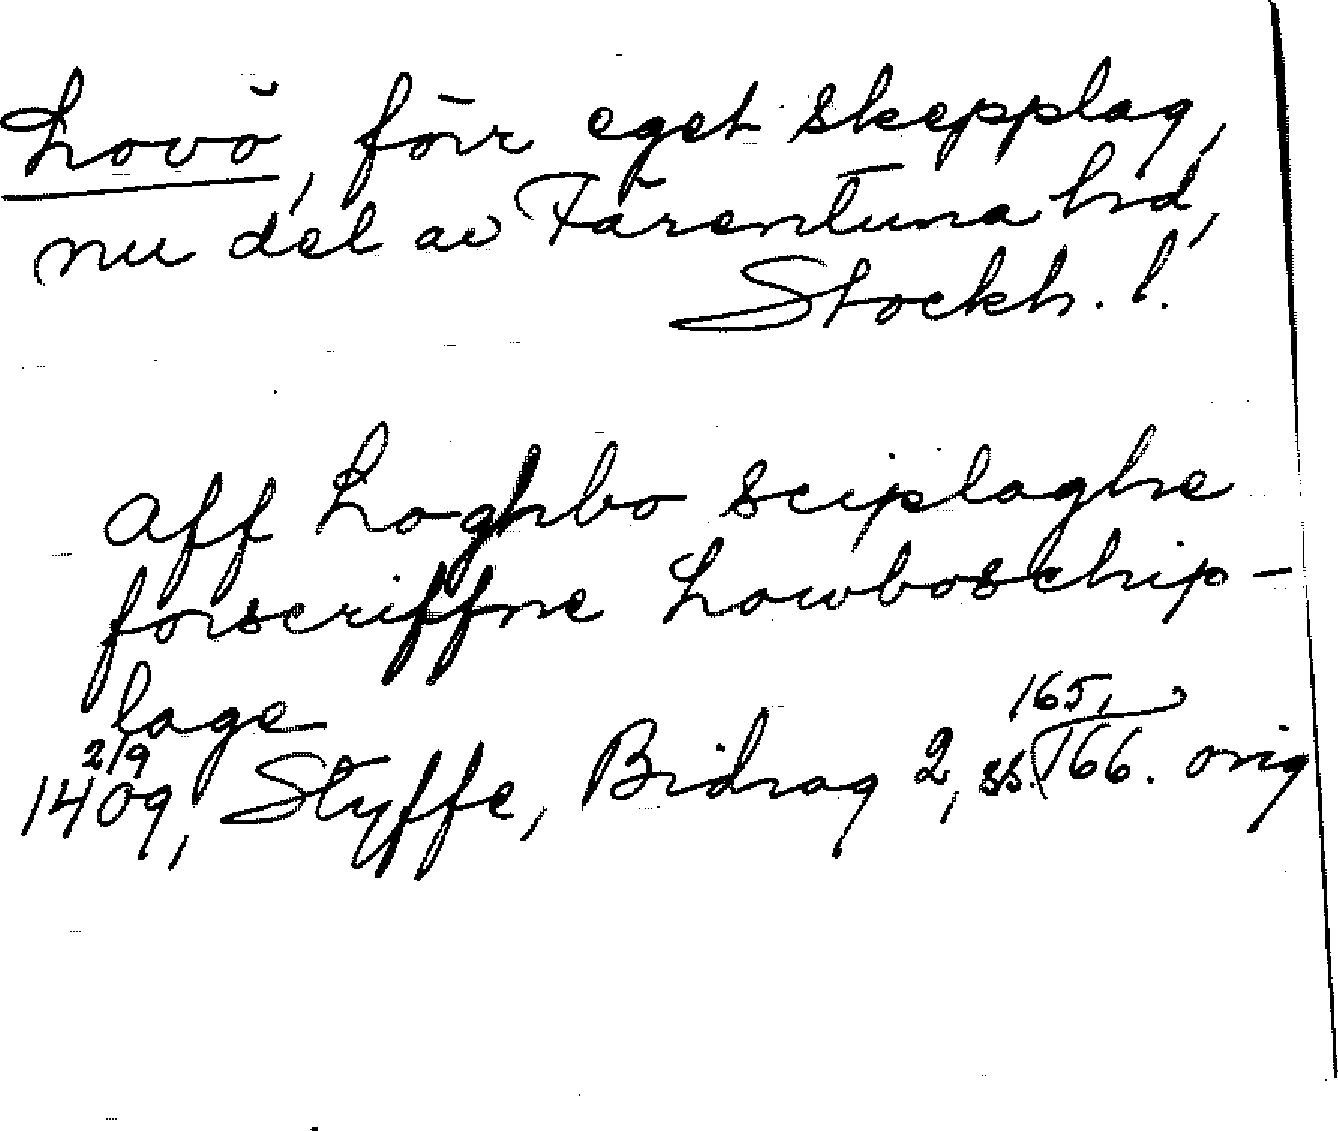 Lovö, förr eget skepplag,
nu del av Färentuna hd,
Stockh. l.
aff Loghbo sciplaghe
forscriffne Lowboschip-
lage
2/9
1409, Styffe, Bidrag 2, ss. 165, 166. orig